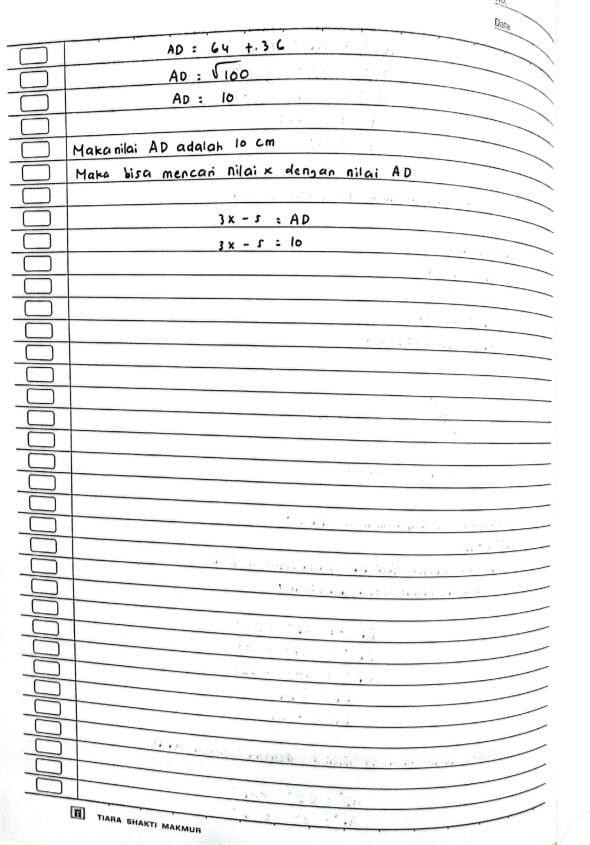 No.
Date
AD = 64 + 36
AD = √100
AD = 10
Maka nilai AD adalah 10 cm
Maka bisa mencari nilai x dengan nilai AD
3x - 5 = AD
3x - 5 = 10
TIARA SHAKTI MAKMUR